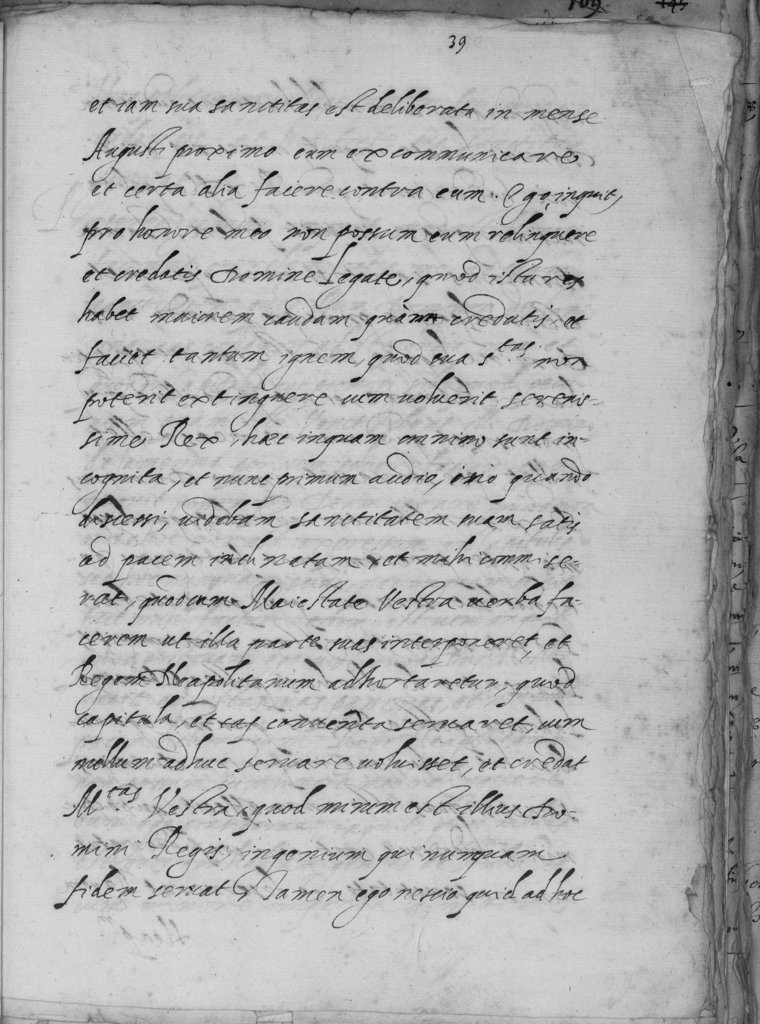 109 195
39
et iam sua sanctitas est deliberata in mense
Augusti proximo eum excommunicare,
et certa alia facere contra eum. Ego, inquit,
pro honore meo non possum eum relinquere
et credatis Domine Legate, quod ista res
habet maiorem caudam quam credatis, et
faciet tantum ignem, quod sua s.tas non
poterit extinguere cum voluerit serenis-
sime Rex, haec inquam omnino sunt in-
cognita, et nunc primum audio, imo quando
discessi, videbam sanctitatem suam satis
ad pacem inclinatam, et mihi commise-
rat, quod cum Maiestate Vestra verba fa-
cerem ut illa partes suas interponeret, et
Regem Neapolitanum adhortaretur, quod
capitula, et conventa servaret, cum
nullum adhuc servare voluisset, et credat
M.tas Vestra, quod mirum est illius Do-
mini Regis, ingenium qui nunquam
fidem servat, Tamen ego nescio quid ad hoc